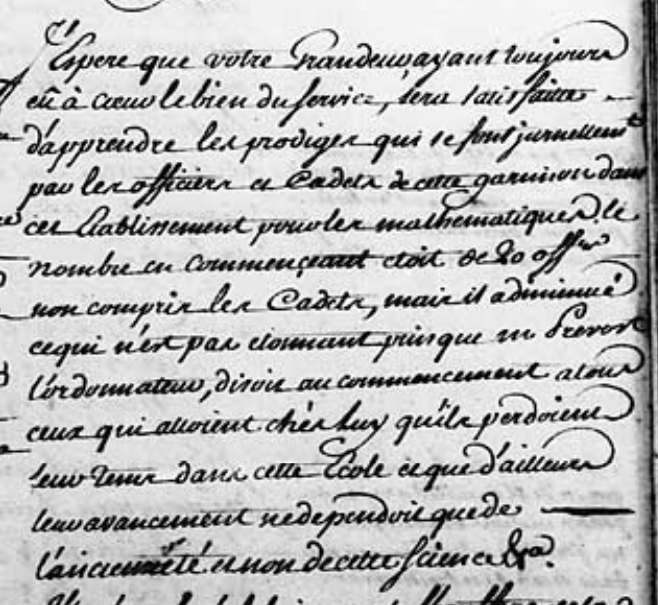 J'Espere que votre Grandeur ayant toujours
eû à coeur le bien du service, sera satisfaitte
d'apprendre les prodiges qui se font jurnellemt
par les officiers et Cadets de cette garnison dans
cet Etablissement pour les mathematiques. le
nombre en commençeant etoit de 20 offers
non compris les Cadets, mais il a diminué
ce qui n'est pas etonnant puisque m Prevost
l'ordonnateur, disoit au commencement a tous
ceux qui alloient chés luy qu'ils perdoient
leur tems dans cette Ecole et que d'ailleurs
leur avancement ne dependoit que de
l'ancienneté et non de cette science &a.